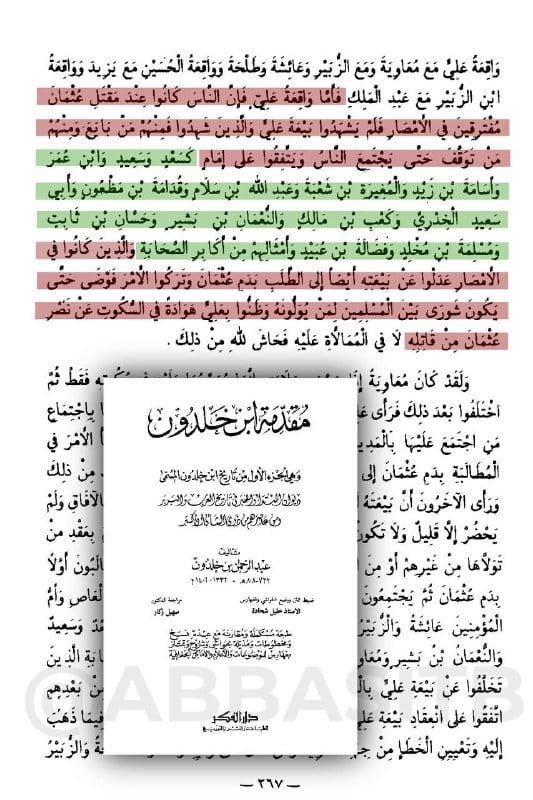 وَاقِعَةُ عَلِيٍّ مَعَ مُعَاوِيَةَ وَمَعَ الزُّبَيْرِ وَعَائِشَةَ وَطَلْحَةَ وَوَاقِعَةُ الْحُسَيْنِ مَعَ يَزِيدَ وَوَاقِعَةُ
ابْنِ الزُّبَيْرِ مَعَ عَبْدِ الْمَلِكِ فَأَمَّا وَاقِعَةُ عَلِيٍّ فَإِنَّ النَّاسَ كَانُوا عِنْدَ مَقْتَلِ عُثْمَانَ
مُفْتَرِقِينَ فِي الْأَمْصَارِ فَلَمْ يَشْهَدُوا بَيْعَةَ عَلِيٍّ وَالَّذِينَ شَهِدُوا فَمِنْهُمْ مَنْ بَايَعَ وَمِنْهُمْ
مَنْ تَوَقَّفَ حَتَّى يَجْتَمِعَ النَّاسُ وَيَتَّفِقُوا عَلَى إِمَامٍ كَسَعْدٍ وَسَعِيدٍ وَابْنِ عُمَرَ
وَأُسَامَةَ بْنِ زَيْدٍ وَالْمُغِيرَةِ بْنِ شُعْبَةَ وَعَبْدِ اللهِ بْنِ سَلَامٍ وَقُدَامَةَ بْنِ مَظْعُونٍ وَأَبِي
سَعِيدٍ الْخُدْرِيِّ وَكَعْبِ بْنِ مَالِكٍ وَالنُّعْمَانِ بْنِ بَشِيرٍ وَحَسَّانَ بْنِ ثَابِتٍ
وَمَسْلَمَةَ بْنِ مُخَلَّدٍ وَفَضَالَةَ بْنِ عُبَيْدٍ وَأَمْثَالِهِمْ مِنْ أَكَابِرِ الصَّحَابَةِ وَالَّذِينَ كَانُوا فِي
الْأَمْصَارِ عَدَلُوا عَنْ بَيْعَتِهِ أَيْضاً إِلَى الطَّلَبِ بِدَمِ عُثْمَانَ وَتَرَكُوا الْأَمْرَ فَوْضَى حَتَّى
يَكُونَ شُورَى بَيْنَ الْمُسْلِمِينَ لِمَنْ يُوَلُّونَهُ وَظَنُّوا بِعَلِيٍّ هَوَادَةً فِي السُّكُوتِ عَنْ نَصْرِ
عُثْمَانَ مِنْ قَاتِلِهِ لَا فِي الْمُمَالَأَةِ عَلَيْهِ فَحَاشَ لِلّهِ مِنْ ذلِكَ .
وَلَقَدْ كَانَ مُعَاوِيَةُ فَقَطْ ثُمَّ
اخْتَلَفُوا بَعْدَ ذلِكَ فَرَأَى بِاجْتِمَاعِ
مَنِ اجْتَمَعَ عَلَيْهَا الْأَمْرَ فِي
الْمُطَالَبَةِ بِدَمِ عُثْمَانَ إِلَى مِنْ ذلِكَ
وَرَأَى الْآخَرُونَ أَنَّ بَيْعَتَهُ وَلَمْ
يَحْضُرْ إِلَّا قَلِيلٌ وَلَا بِعَقْدِ مَنْ
تَوَلَّاهَا مِنْ غَيْرِهِمْ أَوْ أَوَّلًا
بِدَمِ عُثْمَانَ ثُمَّ يَجْتَمِعُونَ الْعَاصِ وَأُمُّ
الْمُؤْمِنِينَ عَائِشَةُ وَالزُّبَيْرُ وَسَعِيدٌ
وَالنُّعْمَانُ بْنُ بَشِيرٍ الَّذِينَ
تَخَلَّفُوا عَنْ بَيْعَةِ عَلِيٍّ مِنْ بَعْدِهِمْ
اتَّفَقُوا عَلَى انْعِقَادِ بَيْعَةِ فِيمَا ذَهَبَ
إِلَيْهِ وَتَعْيِينِ الْخَطَإِ مِنْ وَالزُّبَيْرُ
— ٢٦٧ —
مُقَدِّمَة ابْن خَلْدُون
وَهيَ الجزء الأول من تاريخ ابن خلدون المُسَمّى
ديوان المبتدأ والخبر في تاريخ العرب والبربر
ومن عاصرهم من ذوي الشأن الأكبر
تأليف
عَبْد الرحمن بن خَلدُون
٧٣٢-٨٠٨هـ = ١٣٣٢-١٤٠٦م
ضبط المتن ووضع الحواشي والفهارس
الأستاذ خليل شحادة
مراجعة الدكتور
سهيل زكار
دار الفكر
@ABBAS